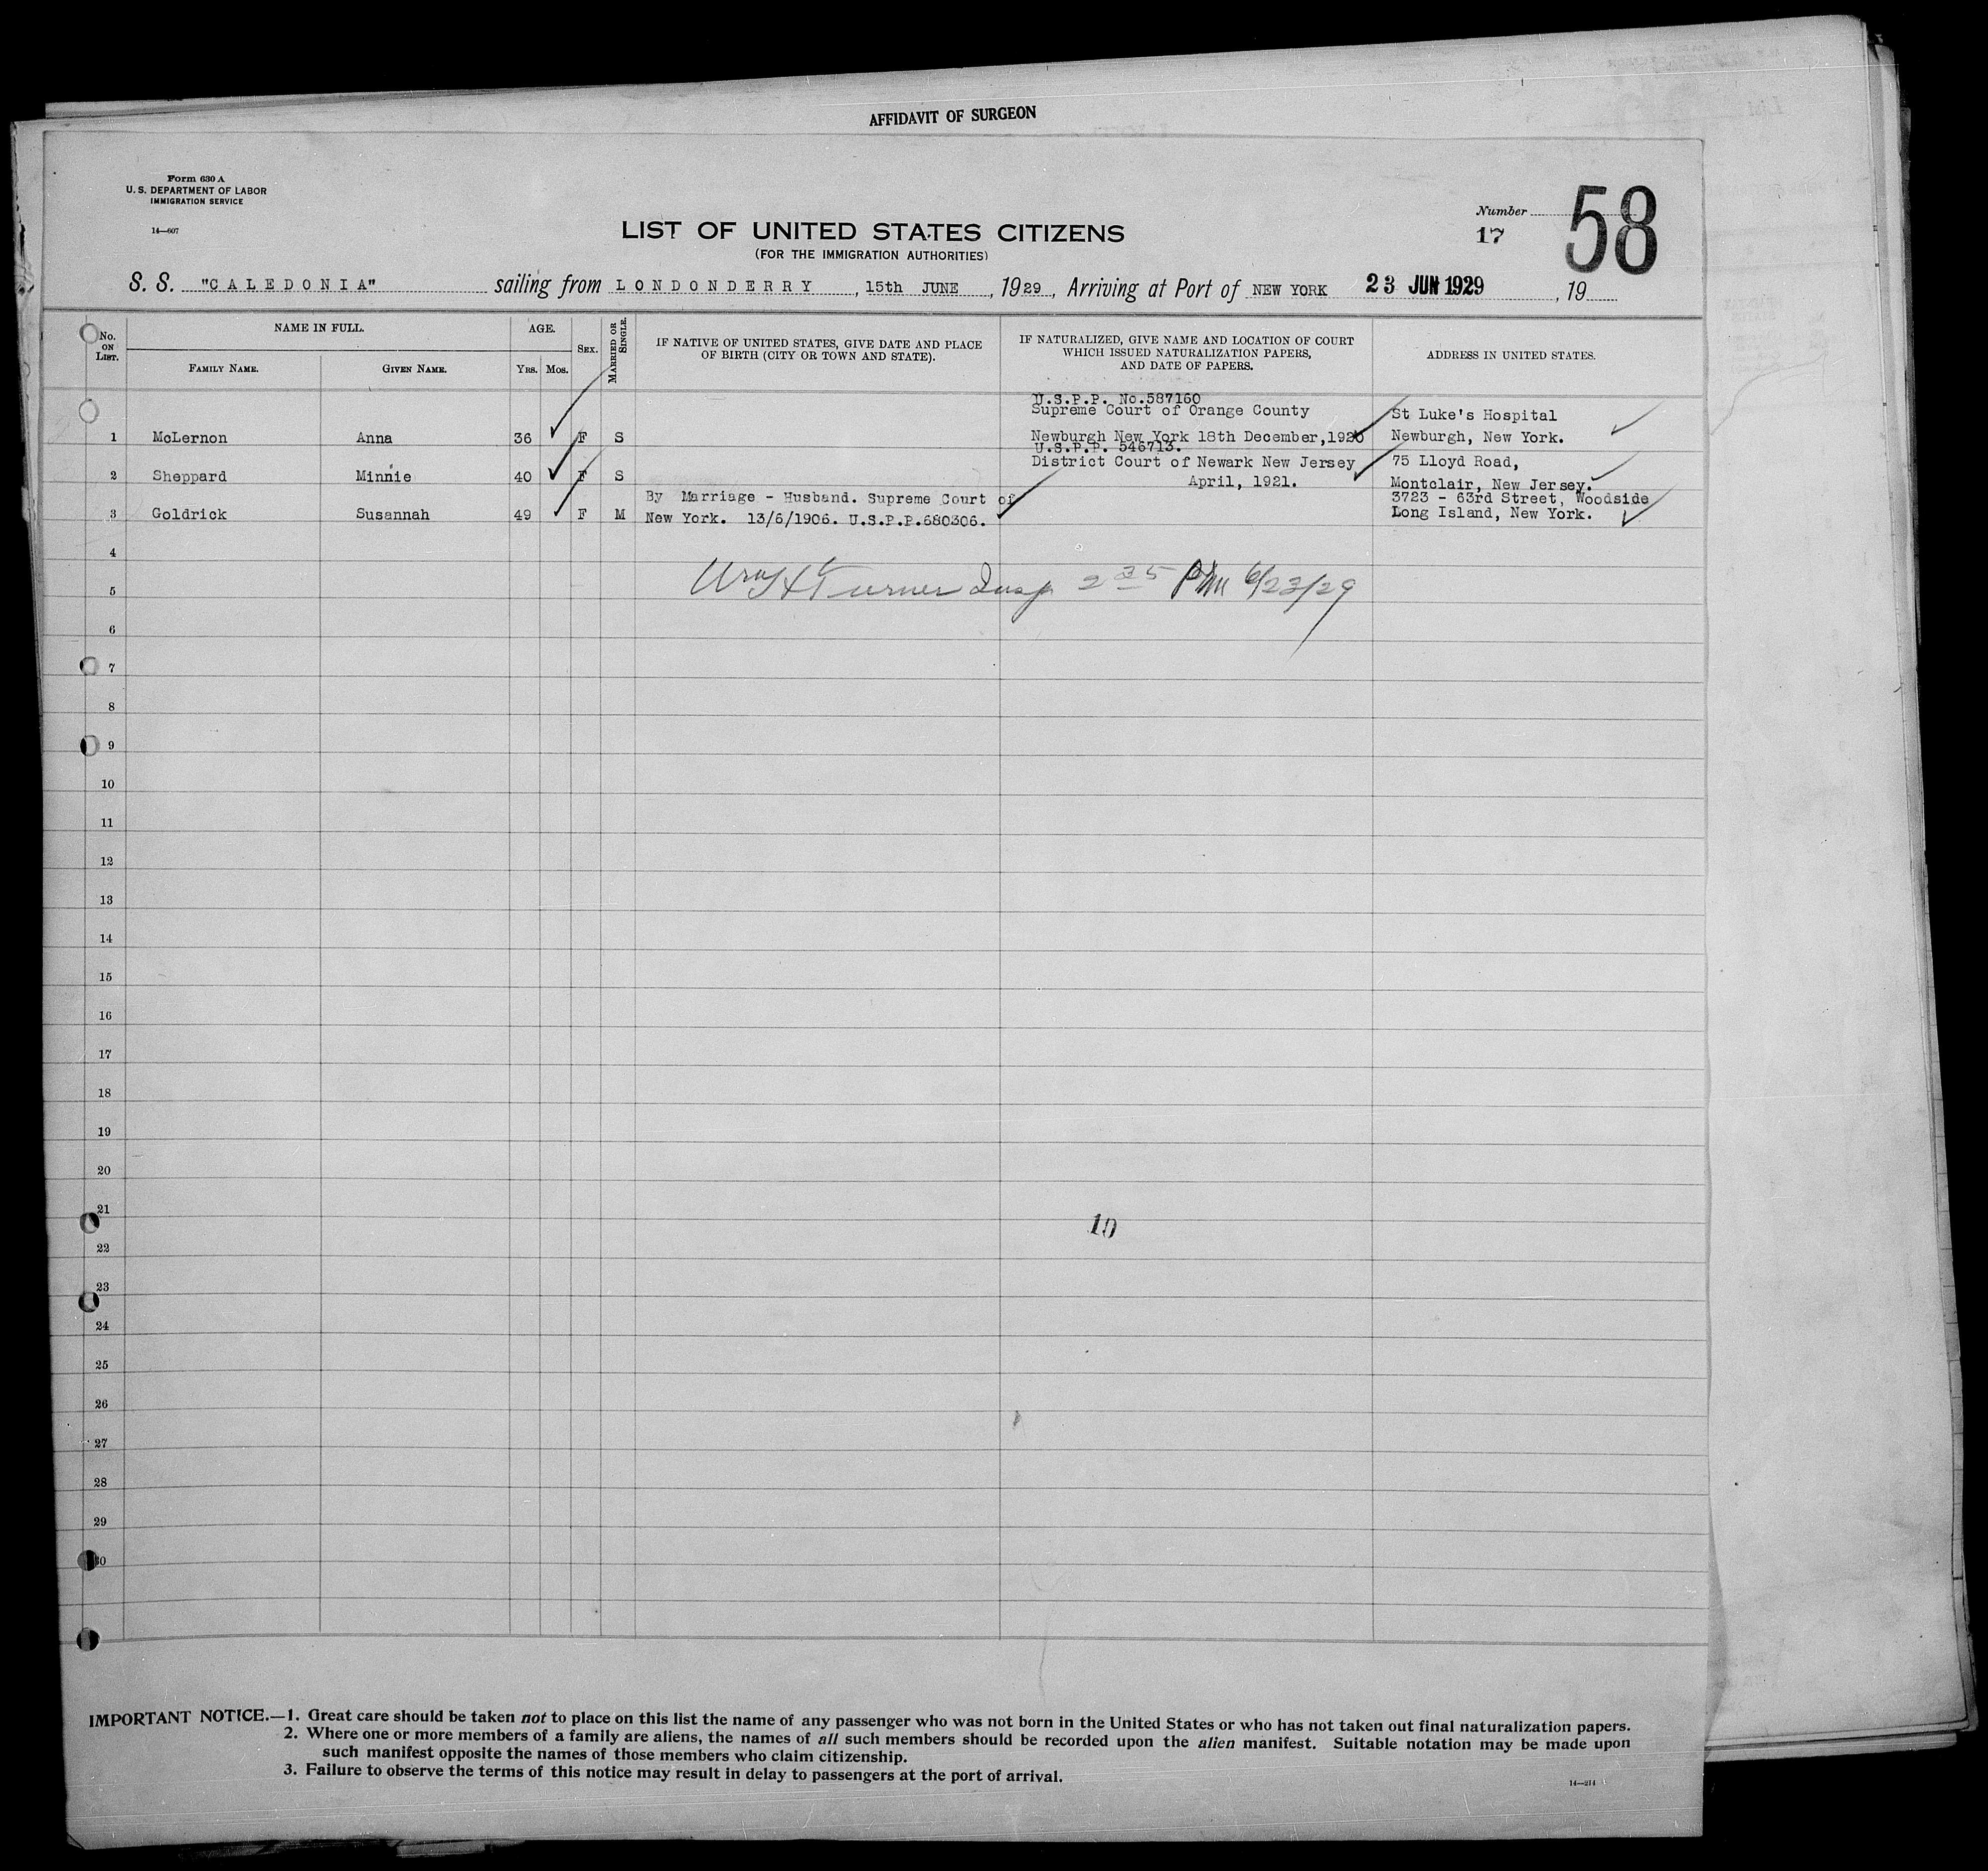 AFFIDAVIT OF SURGEON
Form 630 A
U. S. DEPARTMENT OF LABOR
IMMIGRATION SERVICE
14—607
Number
17
58
LIST OF UNITED STATES CITIZENS
(FOR THE IMMIGRATION AUTHORITIES)
S. S. "CALEDONIA" sailing from LONDONDERRY, 15th JUNE, 1929, Arriving at Port of NEW YORK 23 JUN 1929, 19
No. ON LIST.
NAME IN FULL.
FAMILY NAME.
GIVEN NAME.
AGE.
YRS.
MOS.
SEX.
MARRIED OR SINGLE.
IF NATIVE OF UNITED STATES, GIVE DATE AND PLACE
OF BIRTH (CITY OR TOWN AND STATE).
IF NATURALIZED, GIVE NAME AND LOCATION OF COURT
WHICH ISSUED NATURALIZATION PAPERS,
AND DATE OF PAPERS.
ADDRESS IN UNITED STATES.
U.S.P.P. No.587160
Supreme Court of Orange County St Luke's Hospital
1 McLernon Anna 36 F S Newburgh New York 18th December,1920 Newburgh, New York.
U.S.P.P. 546713.
District Court of Newark New Jersey 75 Lloyd Road,
2 Sheppard Minnie 40 F S April, 1921. Montclair, New Jersey.
By Marriage - Husband. Supreme Court of 3723 - 63rd Street, Woodside
3 Goldrick Susannah 49 F M New York. 13/6/1906. U.S.P.P.680306. Long Island, New York.
4
Wm H Turner Insp 2 35 PM 6/23/29
5
6
7
8
9
10
11
12
13
14
15
16
17
18
19
20
21
10
22
23
24
25
26
27
28
29
30
IMPORTANT NOTICE.—1. Great care should be taken not to place on this list the name of any passenger who was not born in the United States or who has not taken out final naturalization papers.
2. Where one or more members of a family are aliens, the names of all such members should be recorded upon the alien manifest. Suitable notation may be made upon
such manifest opposite the names of those members who claim citizenship.
3. Failure to observe the terms of this notice may result in delay to passengers at the port of arrival.
14—214